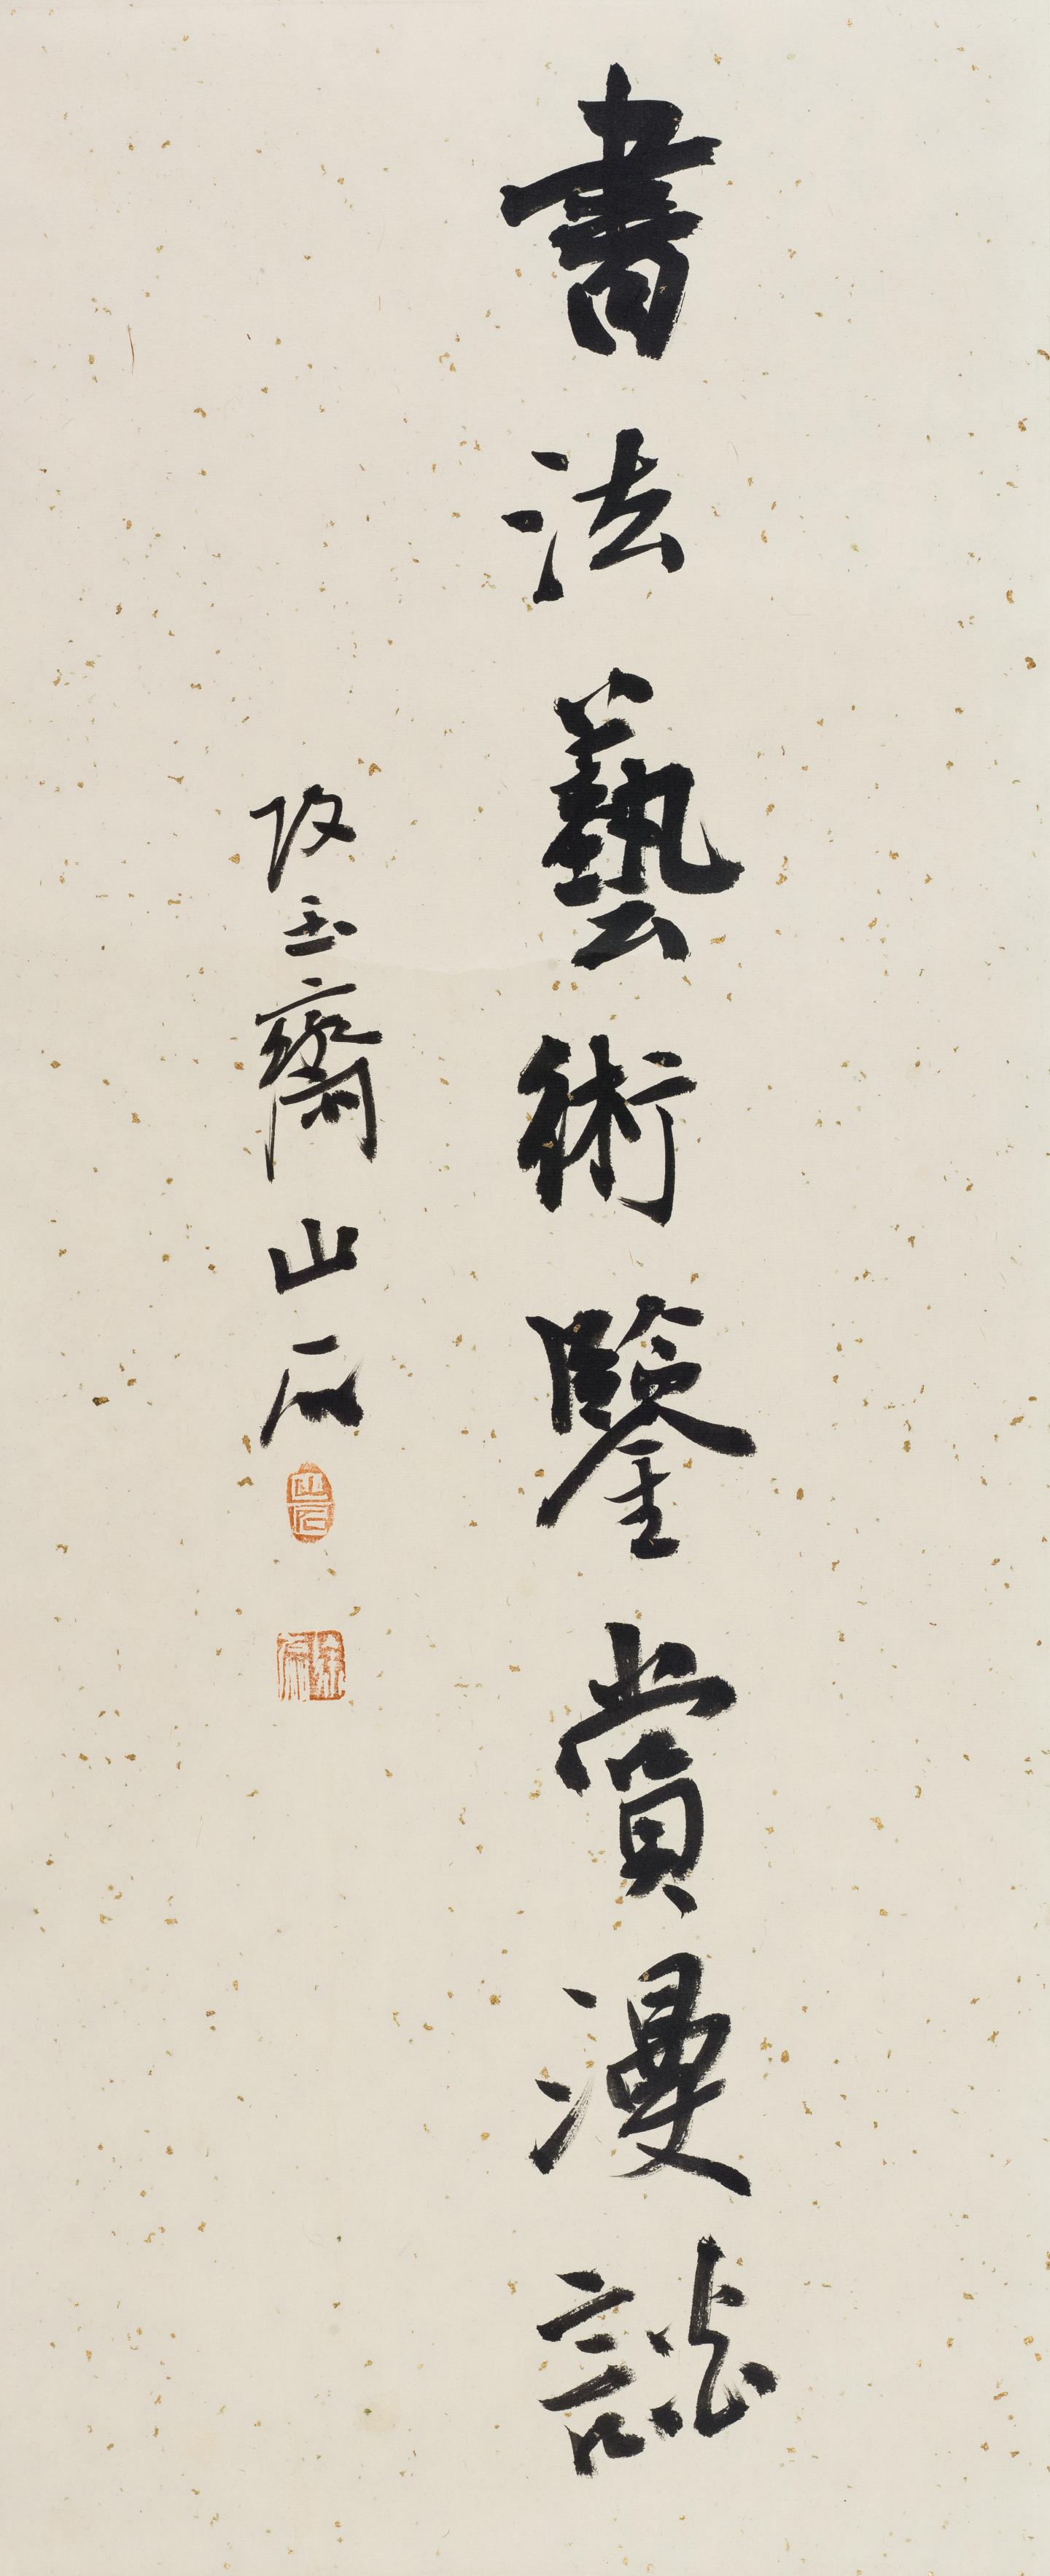 書法藝術鑒賞漫談
攻玉齋山石
山石